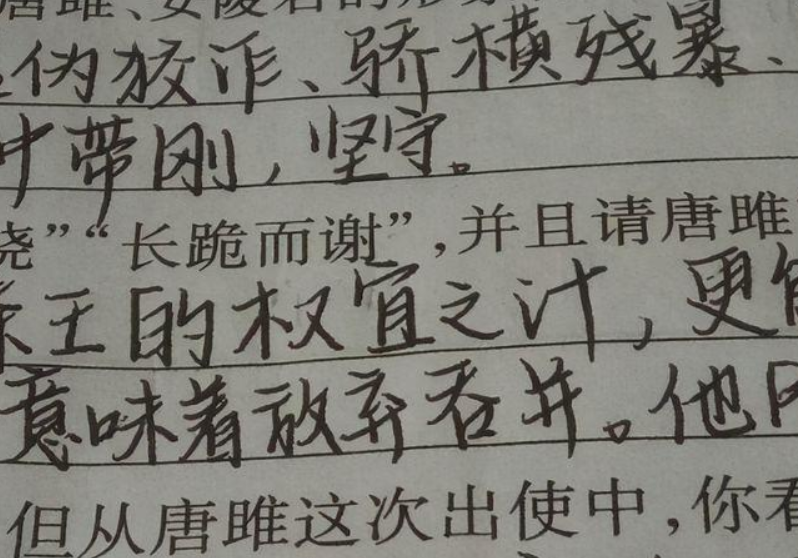 唐雎、安陵君的形
伪狡诈、骄横残暴、
中带刚，坚守。
挠”“长跪而谢”，并且请唐雎
秦王的权宜之计，更
意味着放弃吞并。他
但从唐雎这次出使中，你看